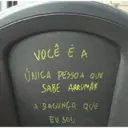 VOCÊ É A
ÚNICA PESSOA QUE
SABE ARRUMAR
A BAGUNÇA QUE
EU SOU